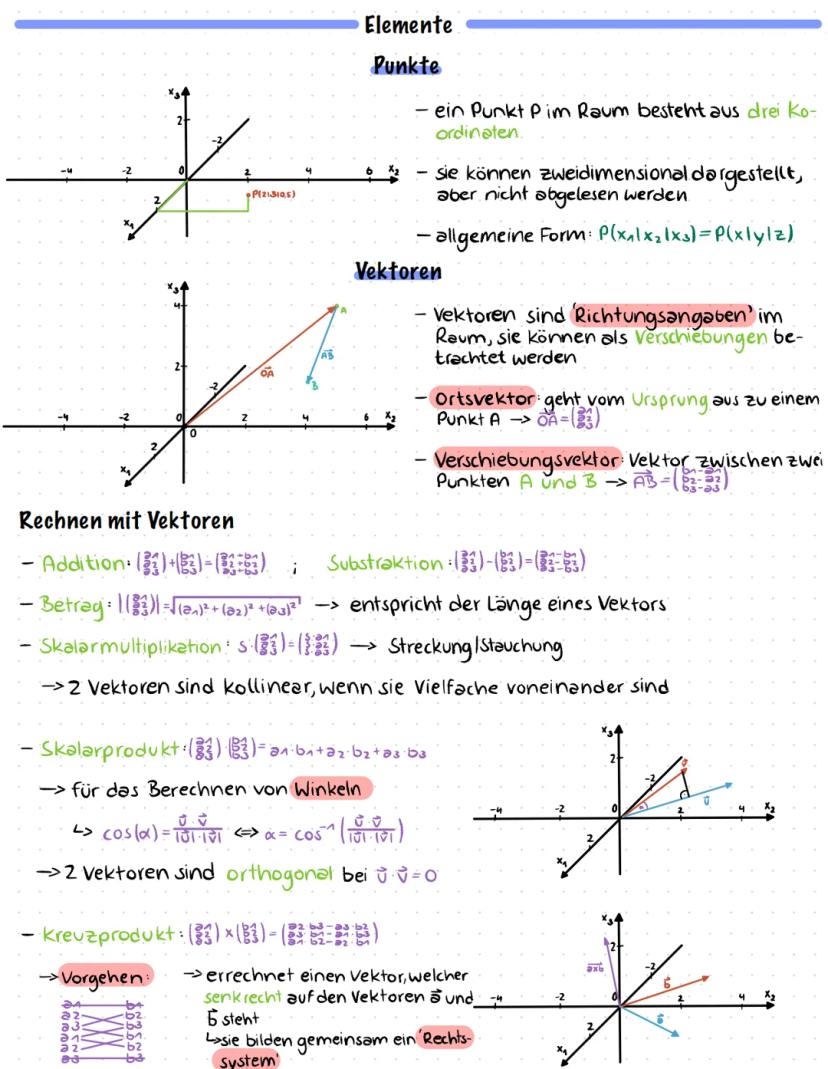 Elemente
Punkte
- ein Punkt P im Raum besteht aus drei Ko-
ordinaten.
- sie können zweidimensional dargestellt,
aber nicht abgelesen werden
- allgemeine Form: P(x₁|x₂|x₃)=P(x|y|z)
x₃
2
-2
-4 -2 0 2 4 6 x₂
P(2|3|0,5)
2
x₁
Vektoren
- Vektoren sind 'Richtungsangaben' im
Raum, sie können als Verschiebungen be-
trachtet werden
- Ortsvektor: geht vom Ursprung aus zu einem
Punkt A → OA⃗=(a1 a2 a3)
- Verschiebungsvektor: Vektor zwischen zwei
Punkten A und B → AB⃗=(b1-a1 b2-a2 b3-a3)
x₃
4 A
AB⃗
2 OA⃗ B
-2
-4 -2 0 2 4 6 x₂
0
2
x₁
Rechnen mit Vektoren
- Addition: (a1 a2 a3)+(b1 b2 b3)=(a1+b1 a2+b2 a3+b3) ; Substraktion: (a1 a2 a3)-(b1 b2 b3)=(a1-b1 a2-b2 a3-b3)
- Betrag: |(a1 a2 a3)|=√(a₁)²+(a₂)²+(a₃)² → entspricht der Länge eines Vektors
- Skalarmultiplikation: s·(a1 a2 a3)=(s·a1 s·a2 s·a3) → Streckung/Stauchung
→ 2 Vektoren sind kollinear, wenn sie Vielfache voneinander sind
- Skalarprodukt: (a1 a2 a3)·(b1 b2 b3)=a₁·b₁+a₂·b₂+a₃·b₃
→ für das Berechnen von Winkeln
↳ cos(α)=u⃗·v⃗/|u⃗|·|v⃗| ⇔ α=cos⁻¹(u⃗·v⃗/|u⃗|·|v⃗|)
→ 2 Vektoren sind orthogonal bei u⃗·v⃗=0
x₃
2
-2 u⃗
-4 -2 0 2 4 x₂
2
x₁
- Kreuzprodukt: (a1 a2 a3)×(b1 b2 b3)=(a2·b3-a3·b2 a3·b1-a1·b3 a1·b2-a2·b1)
→ Vorgehen:
a1 b1
a2 b2
a3 b3
a1 b1
a2 b2
a3 b3
→ errechnet einen Vektor, welcher
senkrecht auf den Vektoren a⃗ und
b⃗ steht
↳ sie bilden gemeinsam ein 'Rechts-
system'
x₃
2
-2
axb b⃗
-4 -2 0 2 4 x₂
2
x₁